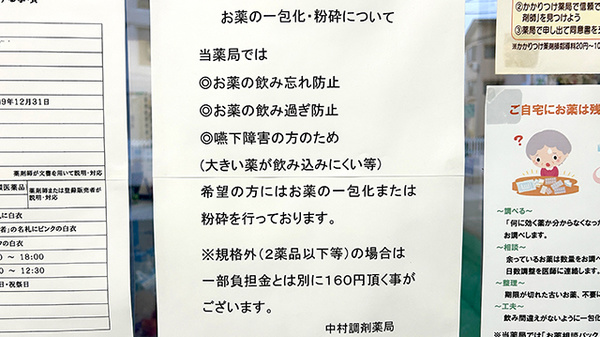 9年12月31日
薬剤師が文書を用いて説明・対応
医薬品
薬剤師または登録販売者が
説明・対応
に白衣
者」の名札にピンクの白衣
の白衣
～ 18:00
～ 12:30
日・祝祭日
お薬の一包化・粉砕について
当薬局では
◎お薬の飲み忘れ防止
◎お薬の飲み過ぎ防止
◎嚥下障害の方のため
(大きい薬が飲み込みにくい等)
希望の方にはお薬の一包化または
粉砕を行っております。
※規格外(2薬品以下等)の場合は
一部負担金とは別に160円頂く事が
ございます。
中村調剤薬局
②かかりつけ薬局で信頼で
剤師」を見つけよう
③薬局で申し出て同意書を
※かかりつけ薬剤師指導料20円～10
ご自宅にお薬は残
?
～調べる～
「何に効く薬か分からなくなった
お調べします。
～相談～
余っているお薬は数量をお調べ
日数調整を医師に連絡します。
～整理～
期限が切れた古いお薬、不要に
～工夫～
飲み間違えがないように一包化
※当薬局では「お薬相談バック